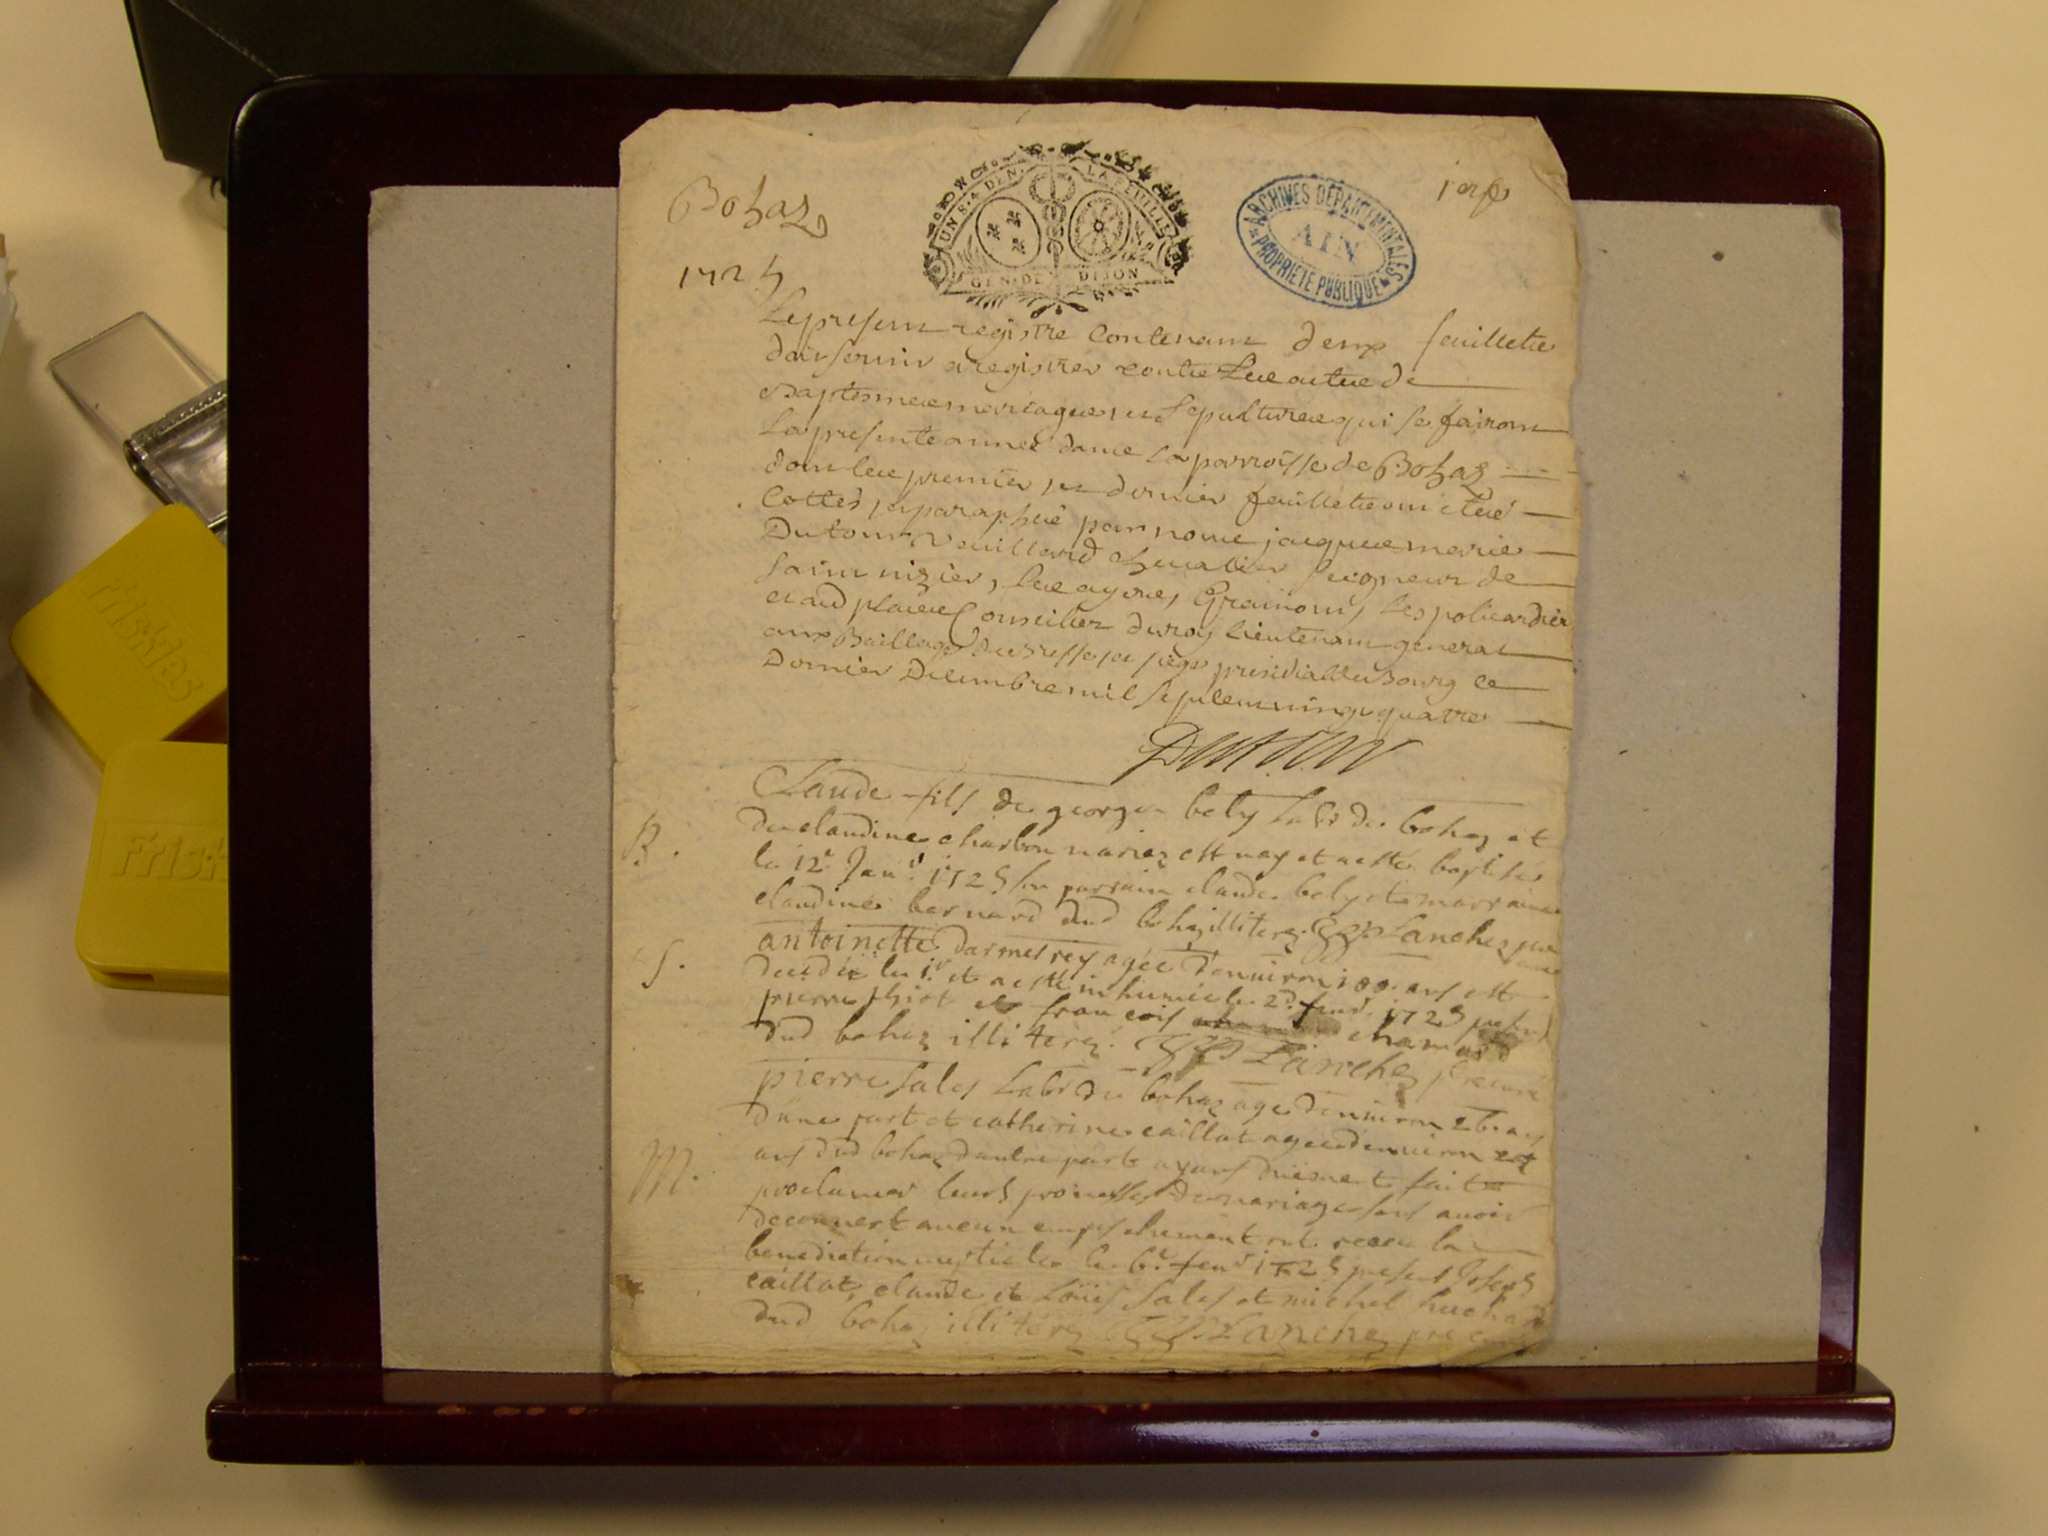 Bohaz
1725
UN S. 4 DEN. LA FEUILLE
GEN. DE DIJON
ARCHIVES DÉPARTEMENTALES
AIN
PROPRIÉTÉ PUBLIQUE
Le present registre Contenant deux feuillets
doit servir a registrer toutes les actes de
Baptesmes mariages et Sepultures qui se fairont
La presente année dans la parroisse de Bohaz
dont les premier et dernier feuillets ont étés
Cottés et paraphés par nous jacques marie
Dutour Vuillard Chevalier Seigneur de
Saint nizier, Les
et au Conseiller du roy Lieutenant general
aux Baillage de Bresse et siege presidial de Bourg ce
Dernier Decembre mil sept cent vingt quatre
Dutour
B.
Claude fils de george bely Labr de bohaz et
de claudine charbon mariez est nay et a esté baptisé
le 12e Janr 1725 son parrain claude bely et marraine
claudine bernard dud bohaz illiterez Lanchez
S.
antoinette darmes rey agée denuiron 100 ans est
decedée le 1r et a esté inhumée le 2d feur 1725 presens
pierre et francois chamard
dud bohaz illiterez Lanchez
M.
pierre Sales Labr de bohaz agé denuiron
dune part et catherine caillat agee denuiron
ans dud bohaz dautre part ayans düement fait
proclamer leurs promesses de mariage sans auoir
decouuert aucun empeschement ont receu la
benediction nuptiale le 6e feur 1725 present Joseph
caillat, claude et Loüis Sales et michel huchard
dud bohaz illiterez Lanchez
Friskies
Frisk